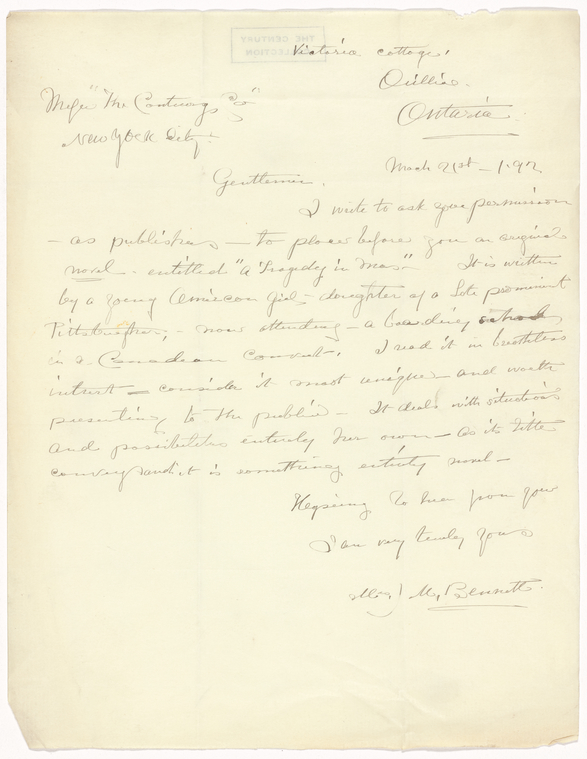 Victoria cottage,
Orillia.
Ontario.
Messrs "The Century Co"
New York City.
March 21st – 1892
Gentlemen.
I write to ask your permission
– as publishers – to place before you an original
novel. entitled "A Tragedy in Mars" It is written
by a young American girl – daughter of a late prominent
Pittsburgher, – now attending – a boarding school,
in a Canadian convent. I read it in breathless
interest – consider it most unique – and worth
presenting to the public – It deals with situations
and possibilities entirely her own – as its title
conveys and it is something entirely novel –
Hoping to hear from you
I am very truly yours
M. Bennett.
THE CENTURY
COLLECTION